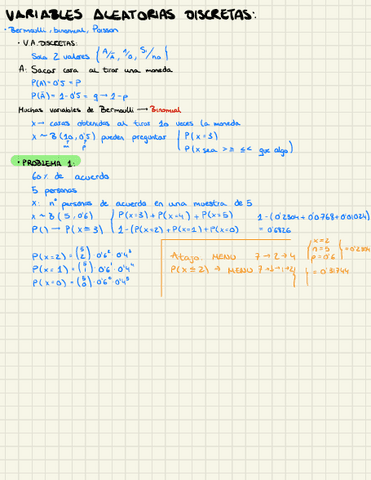 VARIABLES ALEATORIAS DISCRETAS:
· Bernoulli, binomial, Poisson
· V.A. DISCRETAS:
Solo 2 valores { A/Ā, 1/0, Sí/no }
A: Sacar cara al tirar una moneda
P(A)=0'5=P
P(Ā)=1-0'5=q→1-p
Muchas variables de Bernoulli → Binomial
x→ caras obtenidas al tirar 10 veces la moneda
x ~ B(10,0'5) pueden preguntar { P(x=3)
n p P(x sea >= ≤< que algo)
· PROBLEMA 1:
60% de acuerdo
5 personas
x: nº personas de acuerdo en una muestra de 5
x ~ B(5,0'6) { P(x=3)+P(x=4)+P(x=5) 1-(0'2304+0'0768+0'01024)
P( ) → P(x≥3) { 1-(P(x=2)+P(x=1)+P(x=0) =0'6826
P(x=2)=(5 2)·0'6²·0'4³
P(x=1)=(5 1)·0'6¹·0'4⁴
P(x=0)=(5 0)·0'6⁰·0'4⁵
Atajo MENU 7→2→4 { x=2 n=5 p=0'6 }
P(x≤2) → MENU 7→2→1→2 } =0'31744